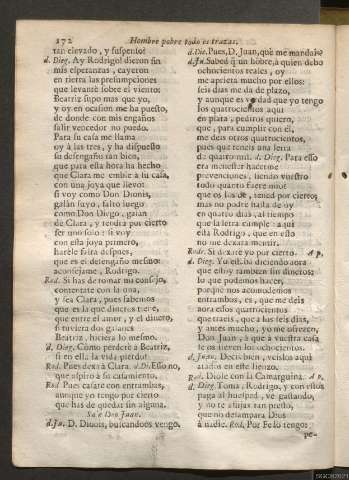 172 Hombre pobre todo es trazas.
tan elevado, y suspenso!
d. Dieg. Ay Rodrigo! dieron fin
mis esperanzas, cayeron
en tierra las presumpciones
que levantè sobre el viento:
Beatriz supo mas que yo,
y oy en ocasion me ha puesto,
de donde con mis engaños
salir vencedor no puedo.
Para su casa me llama
oy à las tres, y ha dispuesto
su desengaño tan bien,
que para ella hora ha hecho
que Clara me embie à su casa,
con una joya que llevo:
si voy como Don Dionis,
galàn suyo, falto luego
como Don Diego, galàn
de Clara, y tendrà por cierto
ser uno solo: si voy
con esta joya primero,
harèle falta despues,
que es el desengaño mesmo:
aconsejame, Rodrigo.
Rod. Si has de tomar mi consejo,
contentate con la una,
y sea Clara, pues sabemos
que es la que dineros tiene,
que entre el amor, y el dinero,
si tuviera dos galanes
Beatriz, hiciera lo mesmo.
d. Dieg. Como perderè à Beatriz,
si en ella la vida pierdo?
Rod. Pues dexa à Clara. d. Di. Esso no,
que aspiro à su casamiento.
Rod. Pues casate con entrambas,
aunque yo tengo por cierto
que has de quedar sin alguna.
Sale Don Juan.
d. Ju. D. Dionis, buscandoos vengo.
d. Die. Pues, D. Juan, què me mandais?
d. Ju. Sabed q̃ un hõbre, à quien debo
ochocientos reales, oy
me aprieta mucho por ellos:
seis dias me dà de plazo,
y aunque es verdad que yo tengo
los quatrocientos aqui
en plata, pediros quiero,
que, para cumplir con èl,
me deis otros quatrocientos,
pues que teneis una letra
de quatro mil. d. Dieg. Para esso
era menester hacerme
prevenciones, siendo vuestro
todo quanto fuere mio?
que os los dè, tened por cierto;
mas no podrè hasta de oy
en quatro dias, al tiempo
que la letra cumple: aqui
està Rodrigo, que en esto
no me dexarà mentir.
Rodr. Si dexarè yo por cierto. Ap.
d. Dieg. Yo estaba diciendo aora
que estoy tambien sin dineros:
lo que podemos hacer,
porque nos acomodemos
entrambos, es, que me deis
aora essos quatrocientos
que traeis, que à los seis dias,
y antes mucho, yo me ofrezco,
Don Juan, à que à vuestra casa
se os lleven los ochocientos.
d. Juan. Decis bien, veislos aqui
atados en este lienzo.
Rod. Diòle con la Camarguina. Ap.
d. Dieg. Toma, Rodrigo, y con estos
paga al huesped, ve gastando,
y no te aflijas tan presto,
que no desampara Dios
à nadie. Rod. Por Feso tengo:
pe-